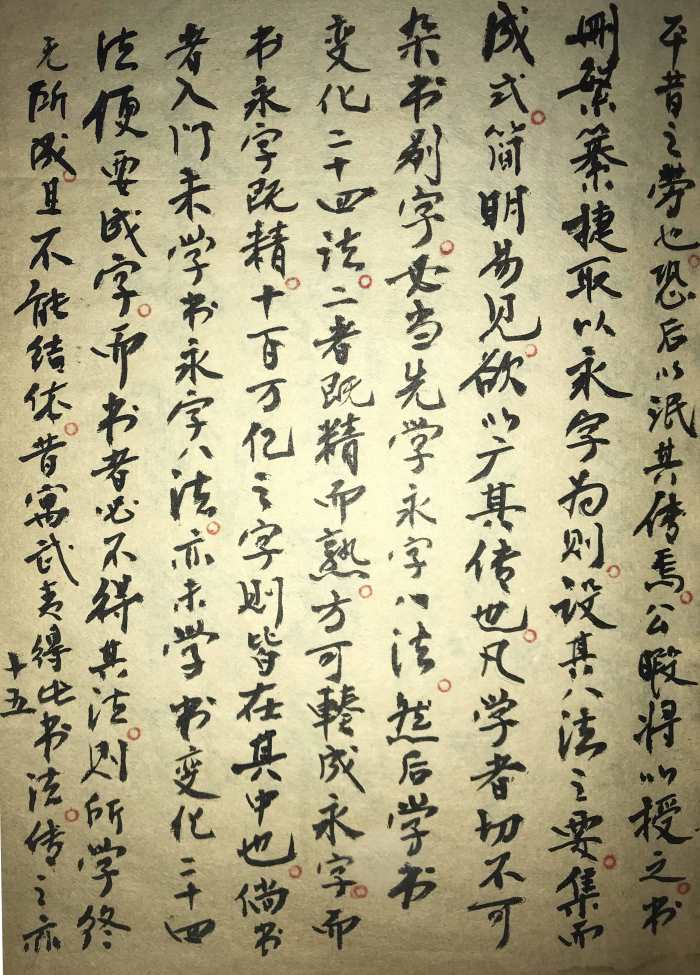 平昔之劳也恐后以泯其传焉公暇将以授之书
删繁纂捷取以永字为则设其八法之要集而
成式简明易见欲以广其传也凡学者切不可
杂书别字必当先学永字八法然后学书
变化二十四法二者既精而熟方可辏成永字而
书永字既精十百万亿之字则皆在其中也倘书
者入门未学书永字八法亦未学书变化二十四
法便要成字而书者必不得其法则所学终
无所成且不能结体昔寓武夷得此书法传之亦
十五